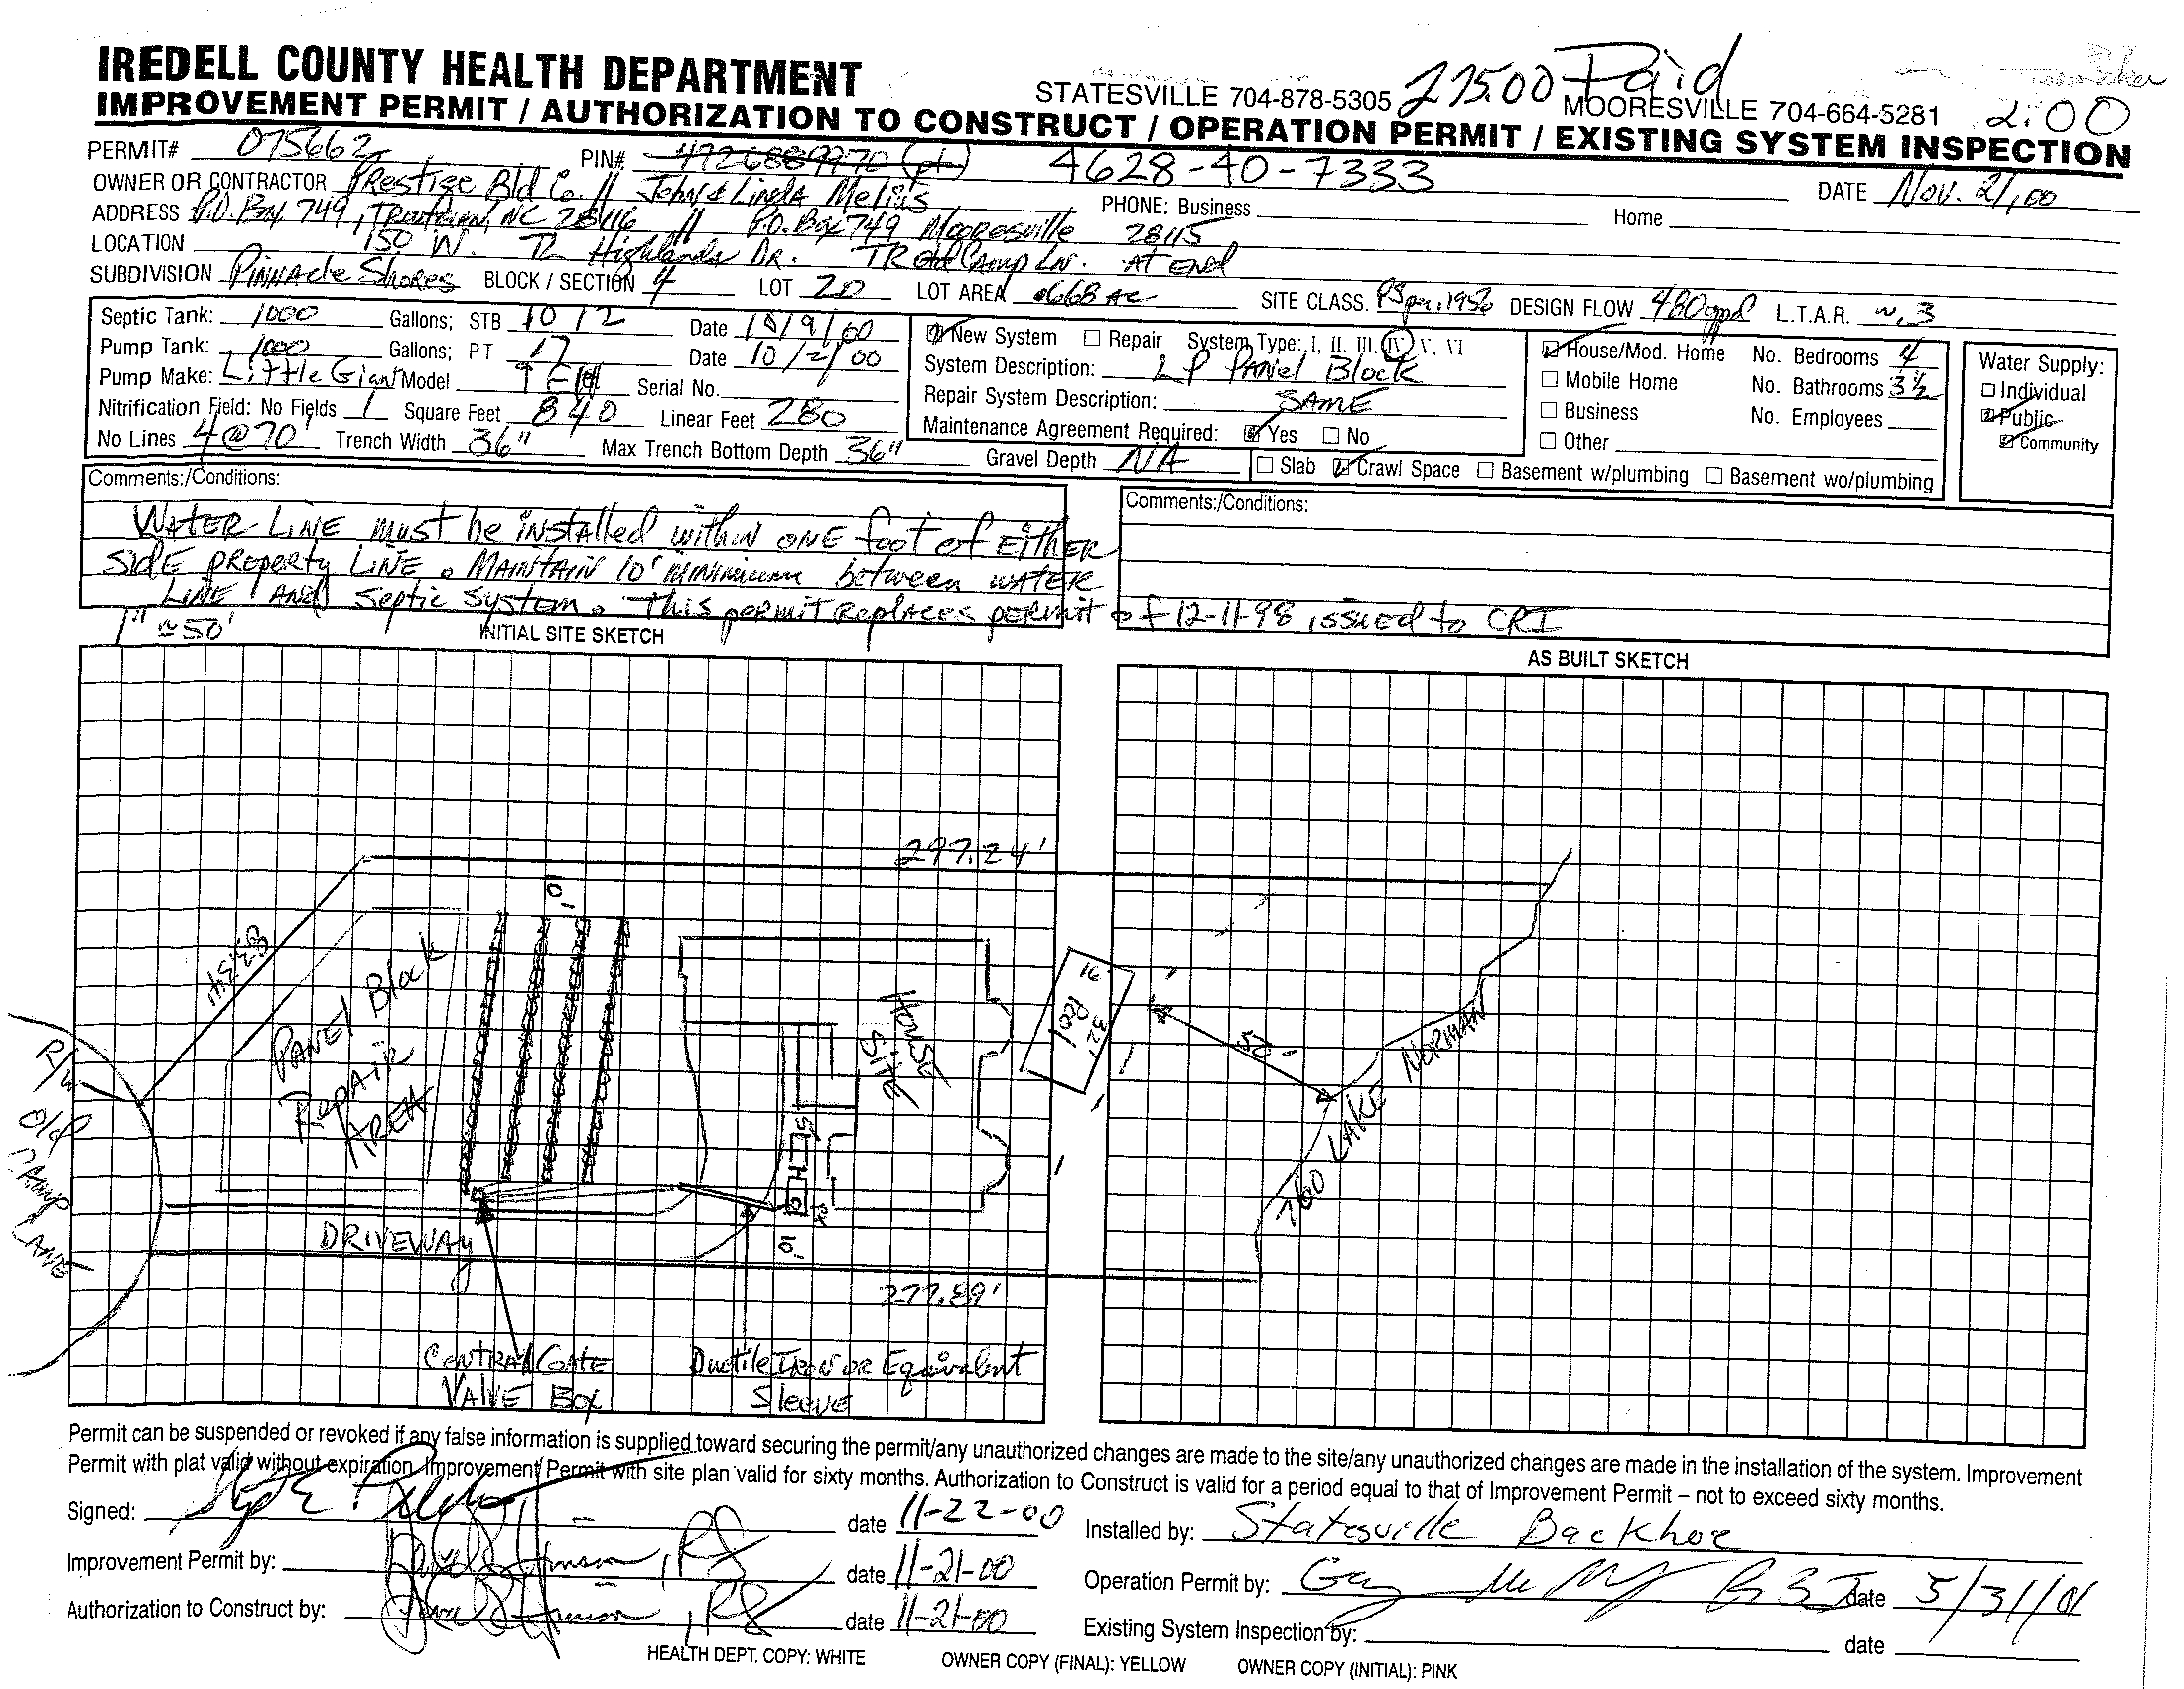 IREDELL COUNTY HEALTH DEPARTMENT
STATESVILLE 704-878-5305 275.00 Paid MOORESVILLE 704-664-5281 2:00
IMPROVEMENT PERMIT / AUTHORIZATION TO CONSTRUCT / OPERATION PERMIT / EXISTING SYSTEM INSPECTION
PERMIT# 075662 PIN# 4628-40-7333
OWNER OR CONTRACTOR Prestige Bld Co. // John & Linda Melius DATE Nov. 21, 00
ADDRESS P.O. Box 749, Troutman, NC 28116 // P.O. Box 749 Mooresville 28115 PHONE: Business Home
LOCATION 150 W. TL Highlands Dr. TR Old Camp Ln. At End
SUBDIVISION Pinnacle Shores BLOCK / SECTION 4 LOT 20 LOT AREA .668 Ac SITE CLASS. DESIGN FLOW 480gpd L.T.A.R. ~.3
Septic Tank: 1000 Gallons; STB 1012 Date 10/9/00
Pump Tank: 1000 Gallons; PT 17 Date 10/2/00
Pump Make: Little Giant Model Serial No.
Nitrification Field: No Fields 1 Square Feet 840 Linear Feet 280
No Lines 4@70' Trench Width 36" Max Trench Bottom Depth 36" Gravel Depth NA
New System Repair System Type: I, II, III, IV, V, VI
System Description: LP Panel Block
Repair System Description: SAME
Maintenance Agreement Required: Yes No
Slab Crawl Space Basement w/plumbing Basement wo/plumbing
House/Mod. Home No. Bedrooms 4
Mobile Home No. Bathrooms 3½
Business No. Employees
Other
Water Supply:
Individual
Public
Community
Comments:/Conditions:
Water Line must be installed within one foot of either
side property line. Maintain 10' minimum between water
line and septic system. This permit replaces permit of 12-11-98 issued to CRI
Comments:/Conditions:
1" ≈ 50'
INITIAL SITE SKETCH
AS BUILT SKETCH
297.24'
10'
83.34'
Panel Block
Repair
Area
House
Site
16
Pool
32'
50'
760 Lake Norman
R/W
Old
Camp
Lane
5'
Driveway
10'
277.89'
Central Gate
Valve Box
Ductile Iron or Equivalent
Sleeve
Permit can be suspended or revoked if any false information is supplied toward securing the permit/any unauthorized changes are made to the site/any unauthorized changes are made in the installation of the system. Improvement
Permit with plat valid without expiration. Improvement Permit with site plan valid for sixty months. Authorization to Construct is valid for a period equal to that of Improvement Permit – not to exceed sixty months.
Signed: date 11-22-00
Improvement Permit by: , RS date 11-21-00
Authorization to Construct by: , RS date 11-21-00
Installed by: Statesville Backhoe
Operation Permit by: date 5/31/01
Existing System Inspection by: date
HEALTH DEPT. COPY: WHITE OWNER COPY (FINAL): YELLOW OWNER COPY (INITIAL): PINK